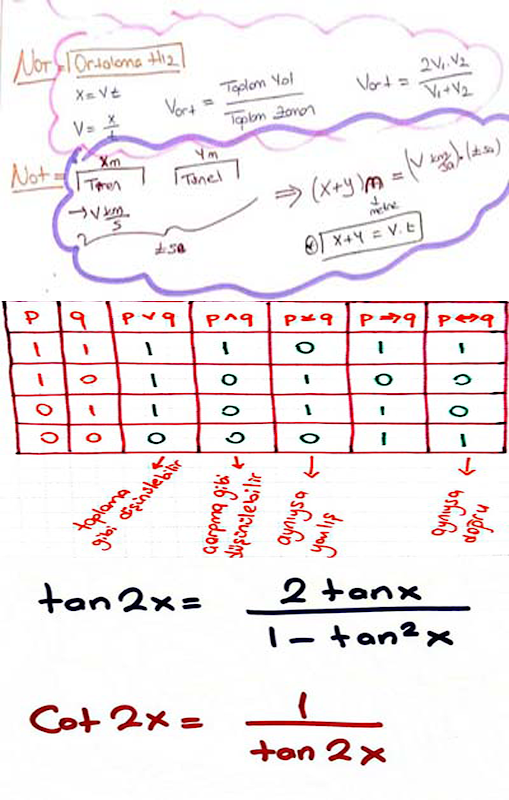 NOT = Ortalama Hız
x = Vt
V = x/t
Vort = Toplam Yol / Toplam Zaman
Vort = 2V₁.V₂ / V₁+V₂
Not =
Xm Ym
Tren Tünel
→ V km/s
t sa
⇒ (x+y)m = (V km/sa).(t sa)
metre
x+y = V.t
p q p∨q p∧q p⊻q p⇒q p⇔q
1 1 1 1 0 1 1
1 0 1 0 1 0 0
0 1 1 0 1 1 0
0 0 0 0 0 1 1
toplama gibi düşünülebilir
çarpma gibi düşünülebilir
aynıysa yanlış
aynıysa doğru
tan 2x = 2 tanx / 1 - tan²x
Cot 2x = 1 / tan 2x